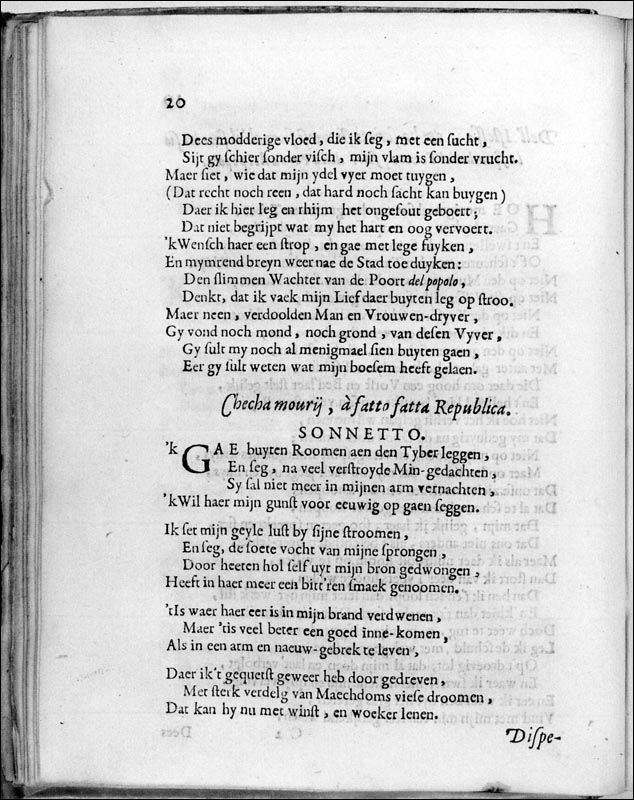 20
Dees modderige vloed, die ik ſeg, met een ſucht,
Sijt gy ſchier ſonder viſch, mijn vlam is ſonder vrucht.
Maer ſiet, wie dat mijn ydel vyer moet tuygen,
(Dat recht noch reen, dat hard noch ſacht kan buygen)
Daer ik hier leg en rhijm het ongeſout geboert;
Dat niet begrijpt wat my het hart en oog vervoert.
'kWenſch haer een ſtrop, en gae met lege fuyken,
En mymrend breyn weer nae de Stad toe duyken:
Den ſlimmen Wachter van de Poort del popolo,
Denkt, dat ik vaek mijn Lief daer buyten leg op ſtroo.
Maer neen, verdoolden Man en Vrouwen-dryver,
Gy vond noch mond, noch grond, van deſen Vyver,
Gy ſult my noch al menigmael ſien buyten gaen,
Eer gy ſult weten wat mijn boeſem heeft gelaen.
Checha mourij, à fatto fatta Republica.
SONNETTO.
'k GAE buyten Roomen aen den Tyber leggen,
En ſeg, na veel verſtroyde Min-gedachten,
Sy ſal niet meer in mijnen arm vernachten,
'kWil haer mijn gunſt voor eeuwig op gaen ſeggen.
Ik ſet mijn geyle luſt by ſijne ſtroomen,
En ſeg, de ſoete vocht van mijne ſprongen,
Door heeten hol ſelf uyt mijn bron gedwongen,
Heeft in haer meer een bitt'ren ſmaek genoomen.
'tIs waer haer eer is in mijn brand verdwenen,
Maer 'tis veel beter een goed inne-komen,
Als in een arm en naeuw-gebrek te leven,
Daer ik't gequetſt geweer heb door gedreven,
Met ſterk verdelg van Maechdoms vieſe droomen,
Dat kan hy nu met winſt, en woeker lenen.
Diſpe-